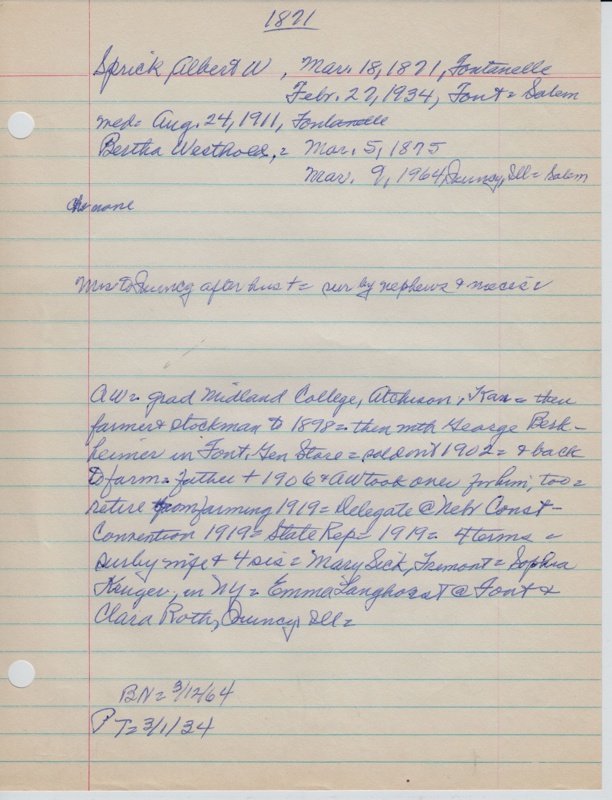 1871
Sprick Albert W, Mar. 18, 1871, Fontanelle
Febr. 27, 1934, Font = Salem
med = Aug. 24, 1911, Fontanelle
Bertha Westhold, = Mar. 5, 1875
Mar. 9, 1964, Quincy, Ill = Salem
Ch = none
Mov to Quincy after hus + = sur by nephews & nieces =
AW = grad Midland College, Atchison, Kan = then
farmer & stockman to 1898 = then with George Berk-
heimer in Font. Gen Store = sold out 1902 = & back
to farm = father + 1906 & AW took over for him, too =
retire from farming 1919 = Delegate @ Nebr Const-
Convention 1919 = State Rep = 1919 = 4 terms =
sur by wife & 4 sis = Mary Sick, Fremont = Sophia
Kruger, in NY = Emma Langhorst @ Font &
Clara Roth, Quincy, Ill =
BN = 3/12/64
PT = 3/1/34